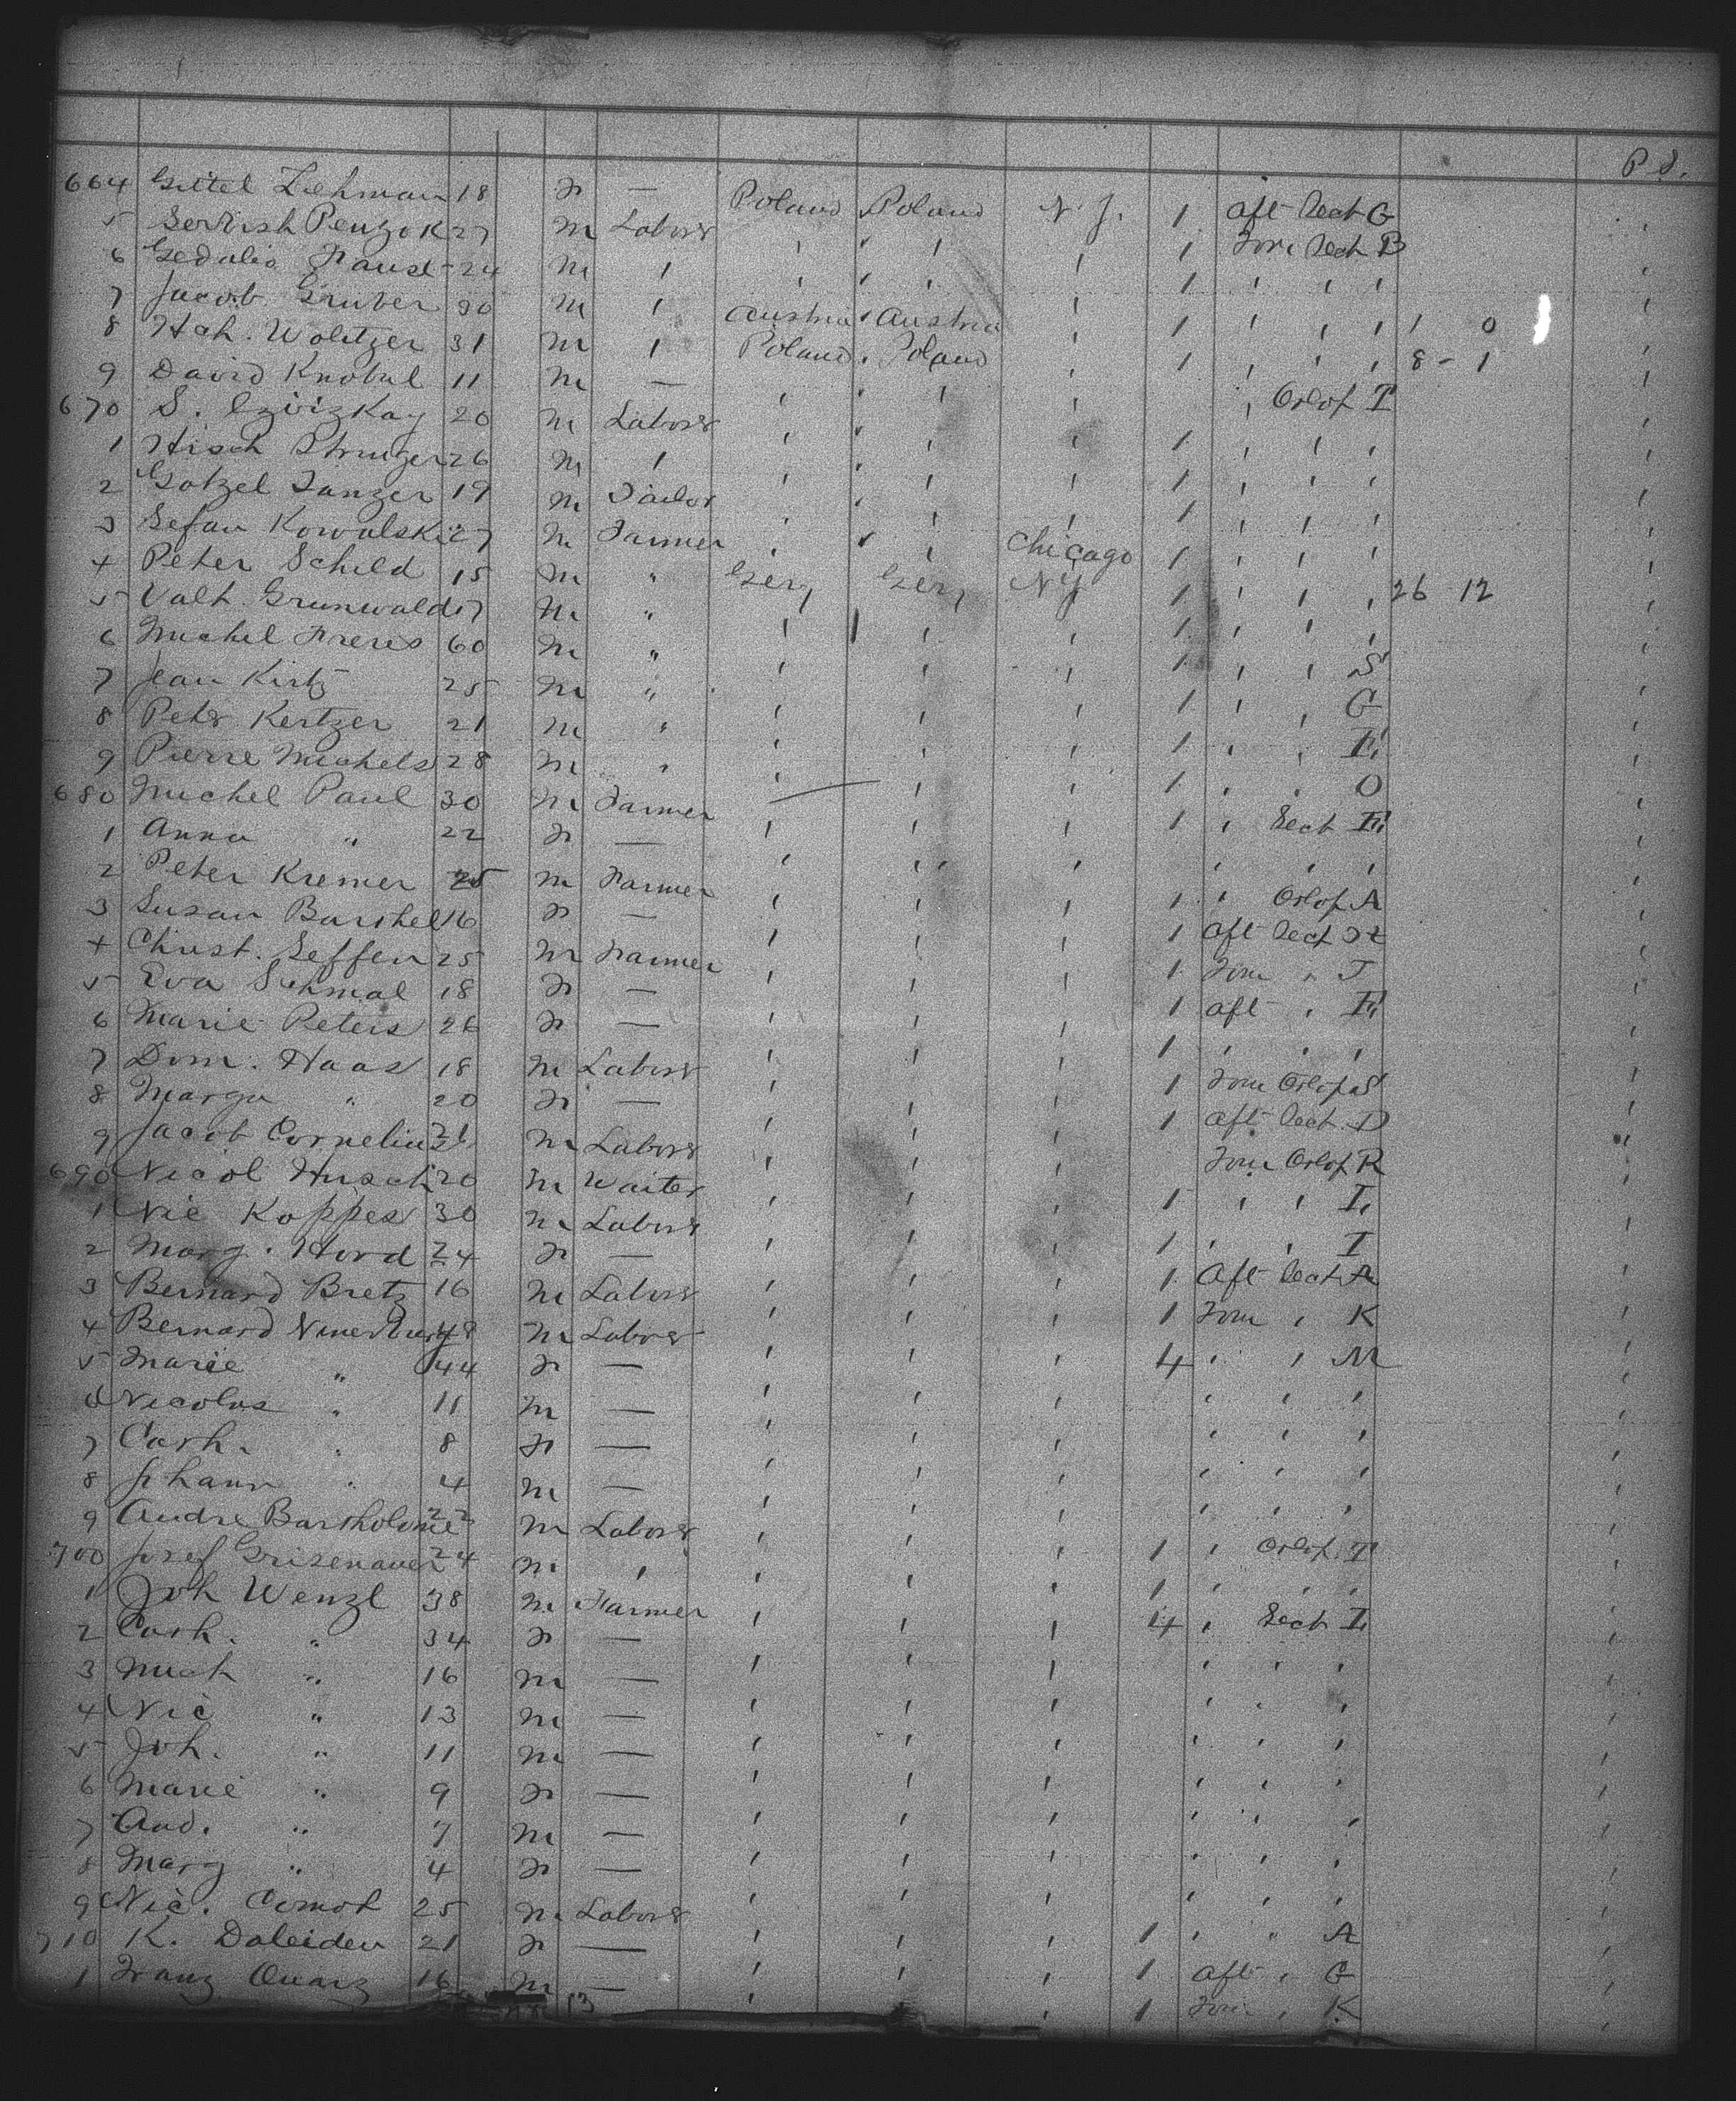 P. S.
664 Gittel Lehman 18 F — Poland Poland N. J. 1 Aft Sect G
5 Penzok 27 M Laborer ' ' ' 1 Forw Sect B
6 Gedalia 24 M ' ' ' ' 1 ' ' '
7 Jacob Gruber 30 M ' Austria Austria ' 1 ' ' ' 1 0
8 Hch. Wolitzer 31 M ' Poland Poland ' 1 ' ' ' 8 - 1
9 David Knobul 11 M — ' ' ' ' Orlop T
670 S. 20 M Laborer ' ' ' 1 ' ' '
1 Hisch 26 M ' ' ' ' 1 ' ' '
2 Gotzel Tanzer 19 M Tailor ' ' ' 1 ' ' '
3 Sefan Kowalski 27 M Farmer ' ' Chicago 1 ' ' '
4 Peter Schild 15 M " Gery Gery NY 1 ' ' ' 26 12
5 Valt. Grunwald 17 M " ' ' ' 1 ' ' '
6 Michel Freres 60 M " ' ' ' 1 ' ' S
7 Jean Kirtz 25 M " ' ' ' 1 ' ' G
8 Petr Kertzer 21 M " ' ' ' 1 ' ' E
9 Pierre Michels 28 M " ' ' ' 1 ' ' O
680 Michel Paul 30 M Farmer ' ' ' 1 ' Sect E
1 Anna " 22 F — ' ' ' ' ' '
2 Peter Kremer 25 M Farmer ' ' ' 1 ' Orlop A
3 Susan Barthel 16 F — ' ' ' 1 Aft Sect H
4 Christ. Seffen 25 M Farmer ' ' ' 1 Forw " T
5 Eva Schmal 18 F — ' ' ' 1 Aft ' E
6 Marie Peters 26 F — ' ' ' 1 ' ' '
7 Dom. Haas 18 M Laborer ' ' ' 1 Forw Orlop S
8 Margr " 20 F — ' ' ' 1 Aft Sect D
9 Jacob Cornelius 21 M Laborer ' ' ' Forw Orlop R
690 Nicol Husch 20 M Waiter ' ' ' 1 ' ' L
1 Nic Koppes 30 M Laborer ' ' ' 1 ' ' I
2 Marg. Hord 24 F — ' ' ' 1 Aft Sect A
3 Bernard Bretz 16 M Laborer ' ' ' 1 Forw ' K
4 Bernard 48 M Laborer ' ' ' 4 ' ' M
5 Marie " 44 F — ' ' ' ' ' '
6 Nicolas " 11 M — ' ' ' ' ' '
7 Cath. " 8 F — ' ' ' ' ' '
8 Johann " 4 M — ' ' ' ' ' '
9 Andre Bartholome 22 M Laborer ' ' ' 1 ' Orlop T
700 Josef Grisenauer 24 M ' ' ' ' 1 ' ' '
1 Joh Wenzl 38 M Farmer ' ' ' 4 ' Sect L
2 Cath. " 34 F — ' ' ' ' ' '
3 Mich " 16 M — ' ' ' ' ' '
4 Nic " 13 M — ' ' ' ' ' '
5 Joh. " 11 M — ' ' ' ' ' '
6 Marie " 9 F — ' ' ' ' ' '
7 And. " 7 M — ' ' ' ' ' '
8 Marg " 4 F — ' ' ' ' ' '
9 Nic. Comot 25 M Laborer ' ' ' 1 ' " A
710 K. Daleiden 21 F — ' ' ' 1 Aft ' G
1 Franz Quarz 16 M — ' ' ' 1 Forw ' K
13